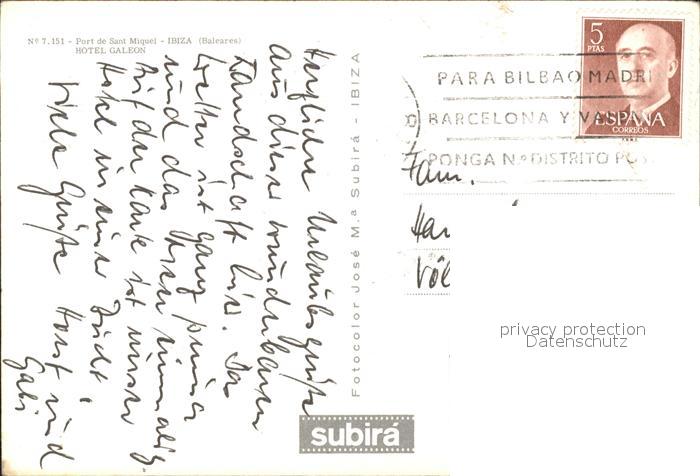 Nº 7.151 - Port de Sant Miquel - IBIZA (Baleares)
HOTEL GALEON
Herzliche Urlaubsgrüße
aus dieser wunderbaren
Landschaft hier. Das
Wetter ist ganz prima
und das Essen einmalig.
Auf der Karte ist unser
Hotel in einer Bucht.
Viele Grüße Horst und
Gabi
Fotocolor José M.ª Subirá - IBIZA
subirá
5
PTAS
ESPAÑA
CORREOS
PARA BILBAO MADRI
BARCELONA Y VA
PONGA Nº DISTRITO POS
Fam.
Har
Völ
privacy protection
Datenschutz